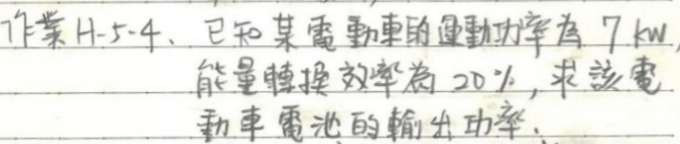 作業 H-5-4、已知某電動車的運動功率為 7 kW,
能量轉換效率為 20%,求該電
動車電池的輸出功率.